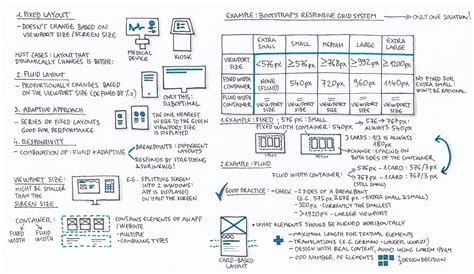 1. FIXED LAYOUT
- DOESN'T CHANGE BASED ON
VIEWPORT SIZE / SCREEN SIZE
MEDICAL
DEVICE
KIOSK
MOST CASES: LAYOUT THAT
DYNAMICALLY CHANGES IS BETTER:
2. FLUID LAYOUT
- PROPORTIONALLY CHANGES BASED
ON THE VIEWPORT SIZE (DEFINED BY %'S)
ONLY THIS:
SUBOPTIMAL
3. ADAPTIVE APPROACH
- SERIES OF FIXED LAYOUTS
GOOD FOR PERFORMANCE
THE ONE NEAREST
IN SIZE TO THE GIVEN
VIEWPORT SIZE
IS DISPLAYED
4. RESPONSIVITY
- COMBINATION OF: FLUID + ADAPTIVE
BREAKPOINTS: DIFFERENT
LAYOUTS
RESPONDS BY STRETCHING
& SHRINKING!
VIEWPORT SIZE:
MIGHT BE SMALLER
THAN THE
SCREEN SIZE
E.G. SPLITTING SCREEN
INTO 2 WINDOWS
APP IS DISPLAYED
ON HALF THE SCREEN
CONTAINER:
FIXED
WIDTH
FLUID
WIDTH
CONTAINS ELEMENTS OF AN APP
/ WEBSITE
- MULTIPLE
- COMBINING TYPES
CARD-BASED
LAYOUT
EXAMPLE: BOOTSTRAP'S RESPONSIVE GRID SYSTEM
ONLY ONE SOLUTION!
EXTRA
SMALL
SMALL
MEDIUM
LARGE
EXTRA
LARGE
VIEWPORT
SIZE
<576px
≥576px
≥768px
≥992px
≥1200px
FIXED WIDTH
CONTAINER
NONE
(FLUID)
540px
720px
960px
1140px
NO FIXED FOR
EXTRA SMALL:
WON'T BE RATIONAL
FLUID WIDTH
CONTAINER
VIEWPORT
SIZE
VIEWPORT
SIZE
VIEWPORT
SIZE
VIEWPORT
SIZE
VIEWPORT
SIZE
1. EXAMPLE: FIXED
576px: SMALL
FIXED WIDTH CONTAINER: 540px
576px → 767px
ALWAYS 540px
3 CARDS: 1/3 IS ALWAYS
180px
- CHANGE: SPACING ON
BOTH SIDES OF THE CONTAINER
2. EXAMPLE: FLUID
FLUID WIDTH CONTAINER:
576px → 1 CARD: 576/3 px
767px → 1 CARD: 767/3 px
(STILL SMALL)
GOOD PRACTICE:
- CHECK - 2 SIDES OF A BREAKPOINT
- CURRENTLY THE SMALLEST
- >1920px - LARGER VIEWPORT
WHAT ELEMENTS SHOULD BE ALIGNED HORIZONTALLY
- MAXIMUM LENGTH FOR TEXTUAL ELEMENTS
- TRANSLATIONS (E.G. GERMAN - LONGER WORDS)
- DESIGN WITH REAL CONTENT, AVOID USING LOREM IPSUM
- ODD NUMBER OF ELEMENTS
DESIGN DECISION